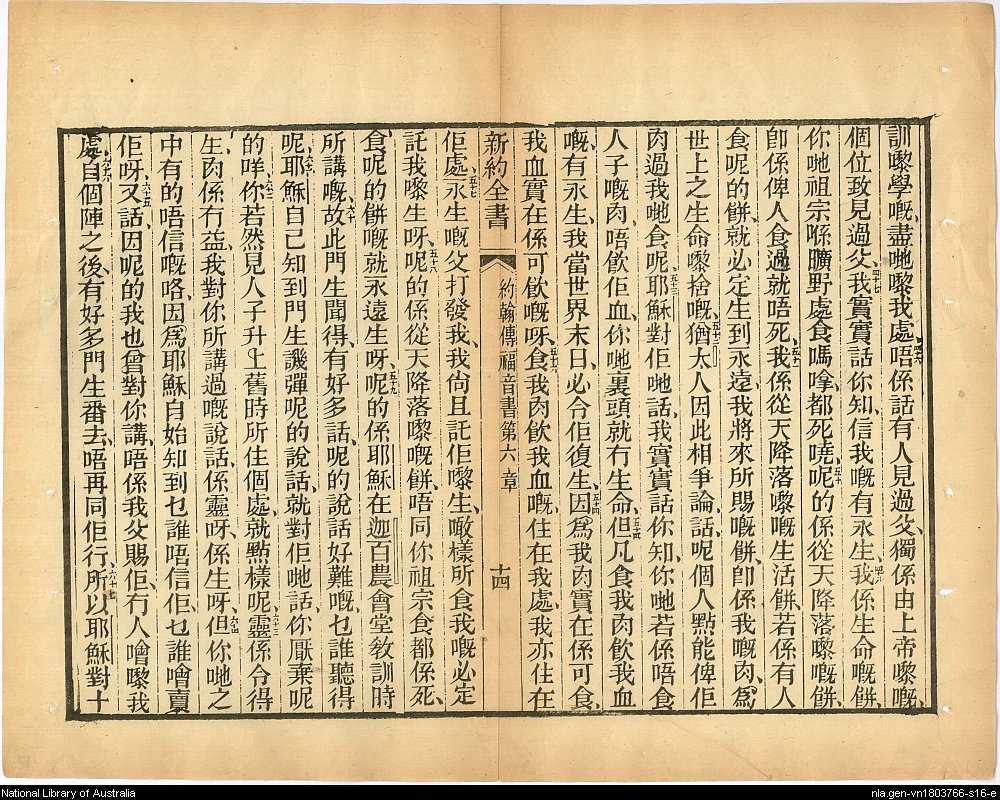 訓嚟學嘅、盡哋嚟我處、四六唔係話有人見過父、獨係由上帝嚟嘅、
個位致見過父、四七我實實話你知、信我嘅有永生、四八我係生命嘅餅、
你哋祖宗喺曠野處食嗎嗱、都死曉、五十呢的係從天降落嚟嘅餅、
卽係俾人食過就唔死、五一我係從天降落嚟嘅生活餅、若係有人
食呢的餅、就必定生到永遠、我將來所賜嘅餅、卽係我嘅肉、爲
世上之生命嚟捨嘅、五二猶太人因此相爭論話、呢個人點能俾佢
肉過我哋食呢、五三耶穌對佢哋話、我實實話你知、你哋若係唔食
人子嘅肉、唔飮佢血、你哋裏頭就冇生命、五四但凡食我肉飮我血
嘅、有永生、我當世界末日、必令佢復生、五五因爲我肉實在係可食、
我血實在係可飮嘅呀、五六食我肉飮我血嘅、住在我處、我亦住在
新約全書 約翰傳福音書第六章 十四
佢處、五七永生嘅父打發我、我尙且託佢嚟生、噉樣所食我嘅必定
託我嚟生呀、五八呢的係從天降落嚟嘅餅、唔同你祖宗食都係死、
食呢的餅嘅就永遠生呀、五九呢的係耶穌在迦百農會堂敎訓時
所講嘅、六十故此門生聞得、有好多話、呢的說話好難嘅、乜誰聽得
呢、六一耶穌自己知到門生譏彈呢的說話、就對佢哋話、你厭棄呢
的咩、六二你若然見人子升上舊時所住個處、就點樣呢、六三靈係令得
生、肉係冇益、我對你所講過嘅說話、係靈呀、係生呀、六四但你哋之
中有的唔信嘅咯、因爲耶穌自始知到乜誰唔信佢、乜誰噲賣
佢呀、六五又話、因呢的我也曾對你講、唔係我父賜佢、冇人噲嚟我
處、六六自個陣之後、有好多門生番去、唔再同佢行、六七所以耶穌對十
National Library of Australia
nla.gen-vn1803766-s16-e